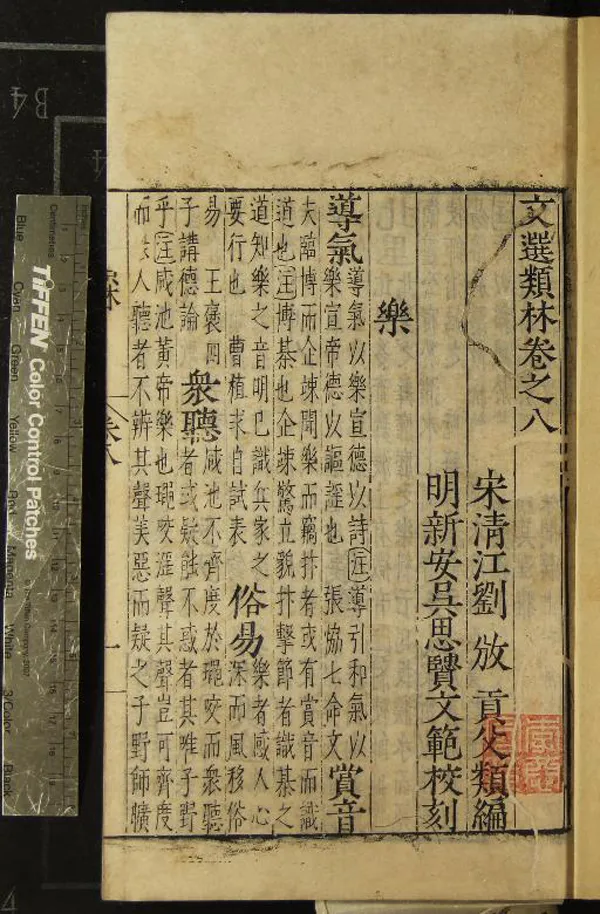 文選類林卷之八
宋清江劉 攽 貢父類編
明新安吳思賢文範校刻
樂
導氣
導氣以樂宣德以詩注導引和氣以
樂宣帝德以謳謠也 張恊七命文
賞音
夫臨博而企竦聞樂而竊抃者或有賞音而識
道也注博棊也企竦驚立貌抃擊節者識棊之
道知樂之音明已識兵家之
要行也 曹植求自試表
俗易
樂者感人心
深而風移俗
易 王褒四
子講德論
衆聽
咸池不齊度於䵷咬而衆聽
者或疑能不惑者其唯子野
乎注咸池黃帝樂也䵷咬淫聲其聲豈可齊度
而人聽者不辨其聲美惡而疑之子野師曠
卷八
一
B4
4
Centimetres
TIFFEN Color Control Patches
Blue
Cyan
Green
Yellow
Red
Magenta
White
3/Color
Black